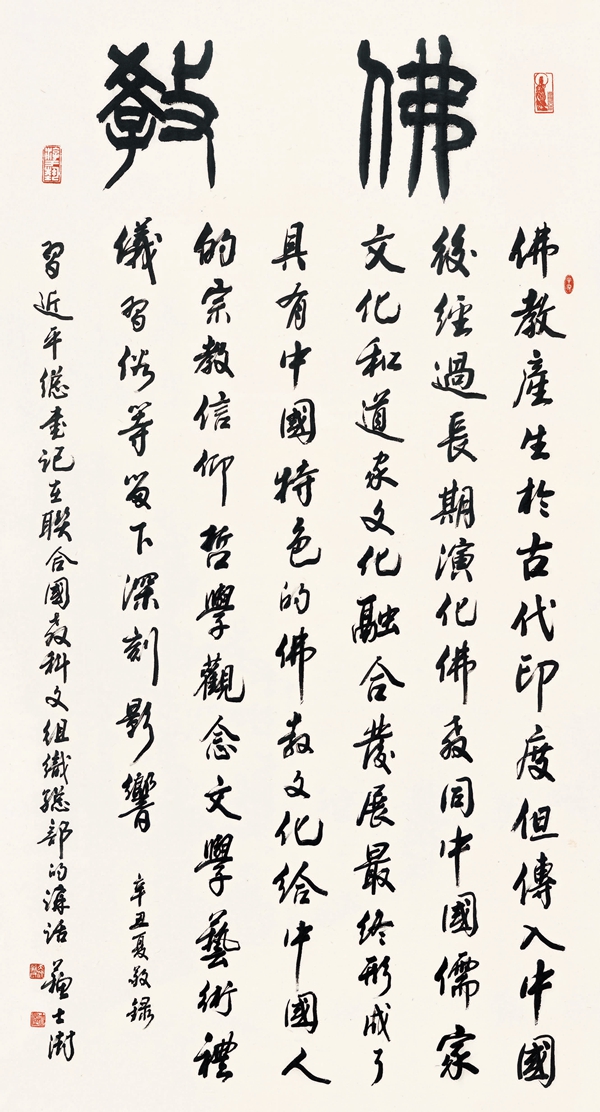 佛教
佛教產生於古代印度但傳入中國
後經過長期演化佛教同中國儒家
文化和道家文化融合發展最終形成了
具有中國特色的佛教文化給中國人
的宗教信仰哲學觀念文學藝術禮
儀習俗等留下深刻影響
辛丑夏敬錄
習近平總書記在聯合國教科文組織總部的講話
蘇士澍